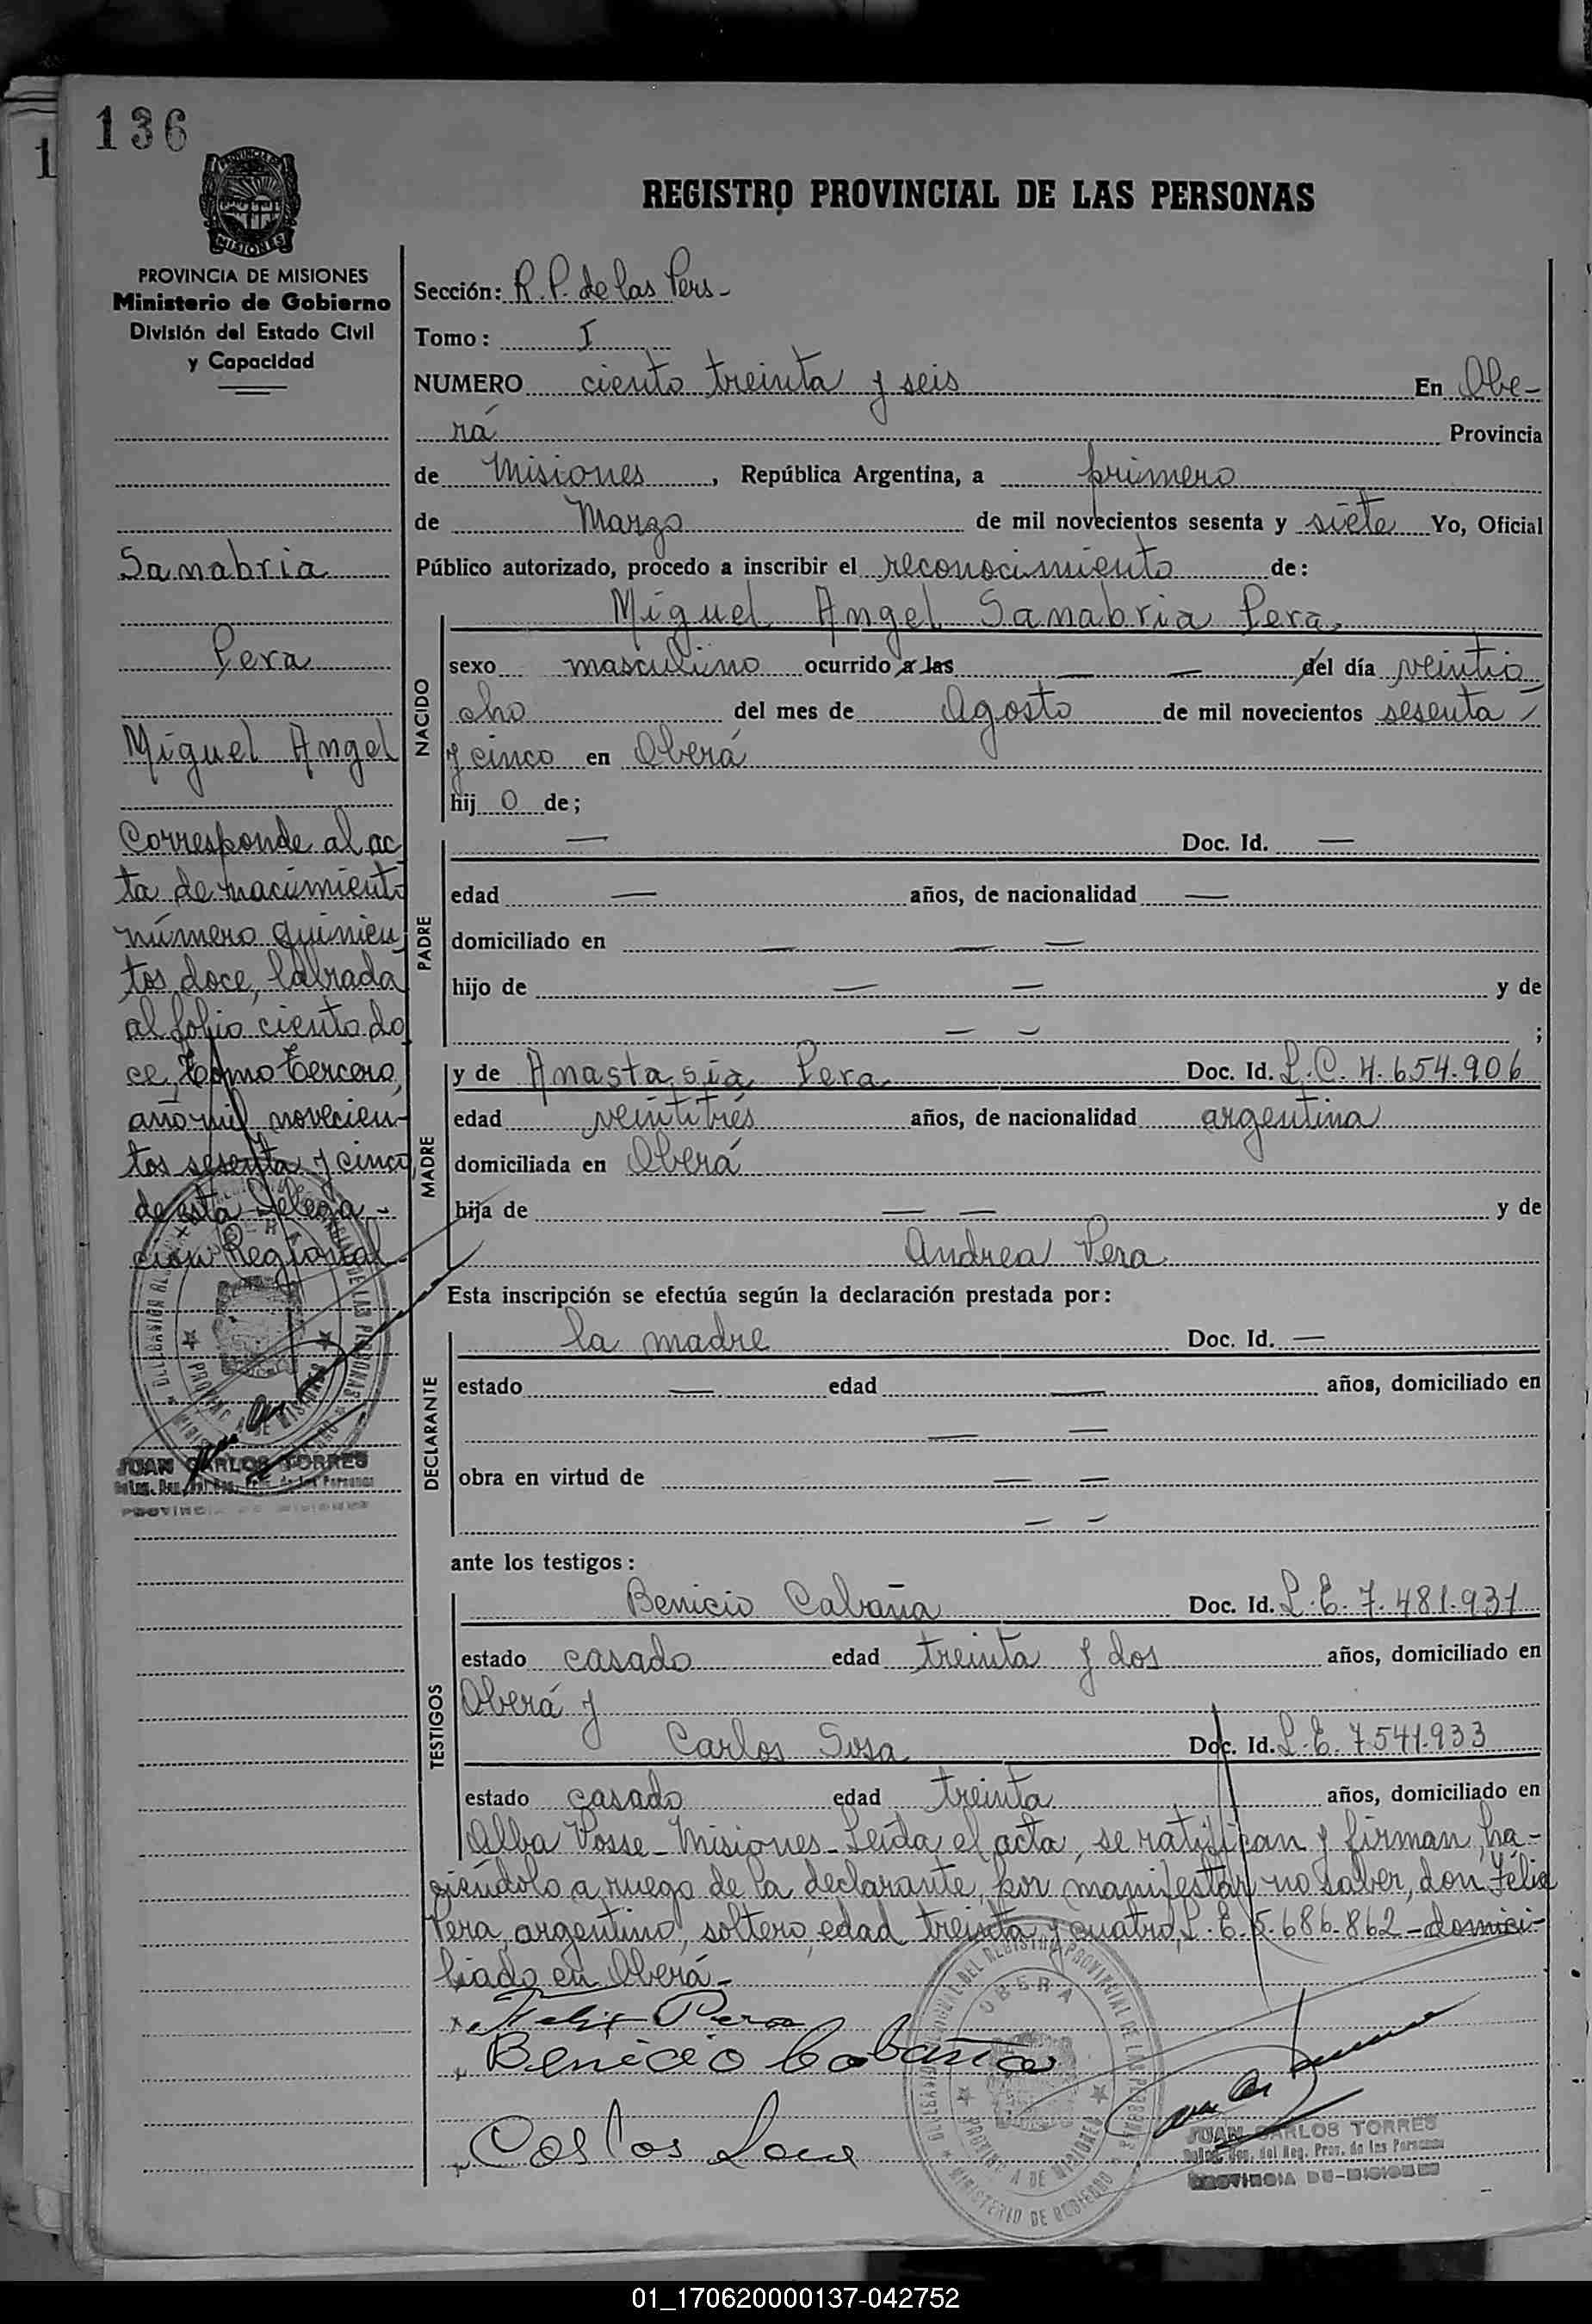 136
1
PROVINCIA DE MISIONES
Ministerio de Gobierno
División del Estado Civil
y Capacidad
Sanabria
Pera
Miguel Angel
Corresponde al ac
ta de nacimiento
número quinien
tos doce, labrada
al folio ciento do
ce, Tomo tercero,
año mil novecien-
tos sesenta y cinco
de esta Delega-
ción Regional
JUAN CARLOS TORRES
REGISTRO PROVINCIAL DE LAS PERSONAS
Sección: R.P. de las Pers-
Tomo: I
NUMERO ciento treinta y seis En Obe-
rá Provincia
de Misiones, República Argentina, a primero
de Marzo de mil novecientos sesenta y siete Yo, Oficial
Público autorizado, procedo a inscribir el reconocimiento de:
NACIDO
Miguel Angel Sanabria Pera
sexo masculino ocurrido a las — — del día veintio
cho del mes de Agosto de mil novecientos sesenta
y cinco en Oberá
hij o de;
PADRE
— Doc. Id. —
edad — años, de nacionalidad —
domiciliado en — — —
hijo de — — y de
— — ;
MADRE
y de Anastasia Pera Doc. Id. L.C. 4.654.906
edad veintitrés años, de nacionalidad argentina
domiciliada en Oberá
hija de — — y de
Andrea Pera
Esta inscripción se efectúa según la declaración prestada por:
DECLARANTE
la madre Doc. Id. —
estado — edad — años, domiciliado en
— —
obra en virtud de — —
— —
ante los testigos:
TESTIGOS
Benicio Cabaña Doc. Id. L.E. 7.481.931
estado casado edad treinta y dos años, domiciliado en
Oberá y
Carlos Sosa Doc. Id. L.E. 7541.933
estado casado edad treinta años, domiciliado en
Alba Posse - Misiones - Leída el acta, se ratifican y firman, ha-
ciéndolo a ruego de la declarante, por manifestar no saber, don Félix
Pera, argentino, soltero, edad treinta y cuatro, L.E. 5.686.862 - domici-
liado en Oberá -
Felix Pera
Benicio Cabaña
JUAN CARLOS TORRES
Deleg. Reg. del Reg. Prov. de las Personas
PROVINCIA DE MISIONES
01_170620000137-042752